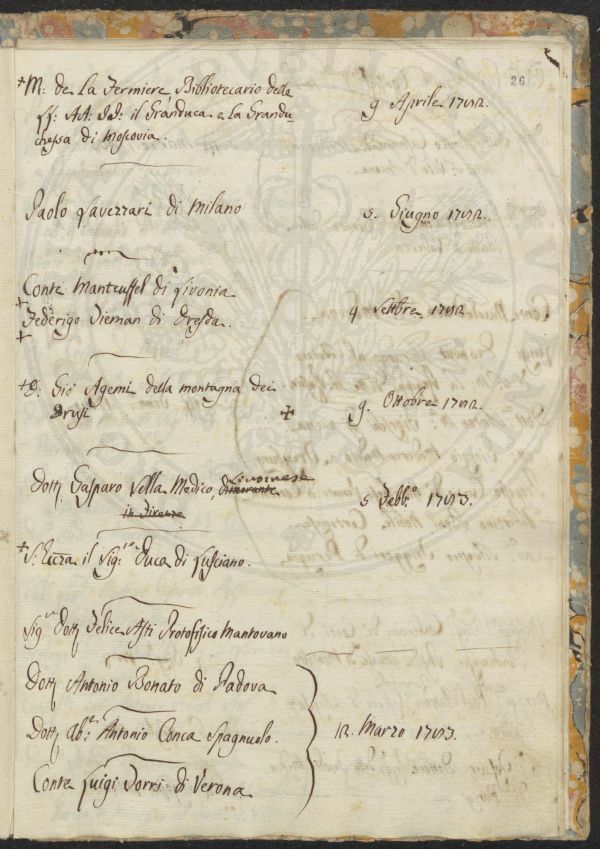 26
+ M: de La Fermiere Bibliotecario delle
ff: AA: JJ: il Granduca e La Grandu-
chessa di Moscovia. 9 Aprile 1782.
Paolo Favezzari di Milano 5. Giugno 1782.
Conte Manteuffel di Livonia
+ Federigo Dieman di Dresda. 4 Settbre 1782
+
+ D: Giõ Agemi della montagna dei
Drusi + 9. Ottobre 1782.
Livornese
Dott. Gasparo Vella Medico, dimorante
in Firenze 5 Febb.º 1783.
+ S. Ecc.za il Sig.r Duca di Lusciano.
Sig.r Dott. Felice Asti Protofisico Mantovano
Dott. Antonio Bonato di Padova
Dott. Ab.e: Antonio Conca Spagnuolo. 12. Marzo 1783.
Conte Luigi Torri di Verona